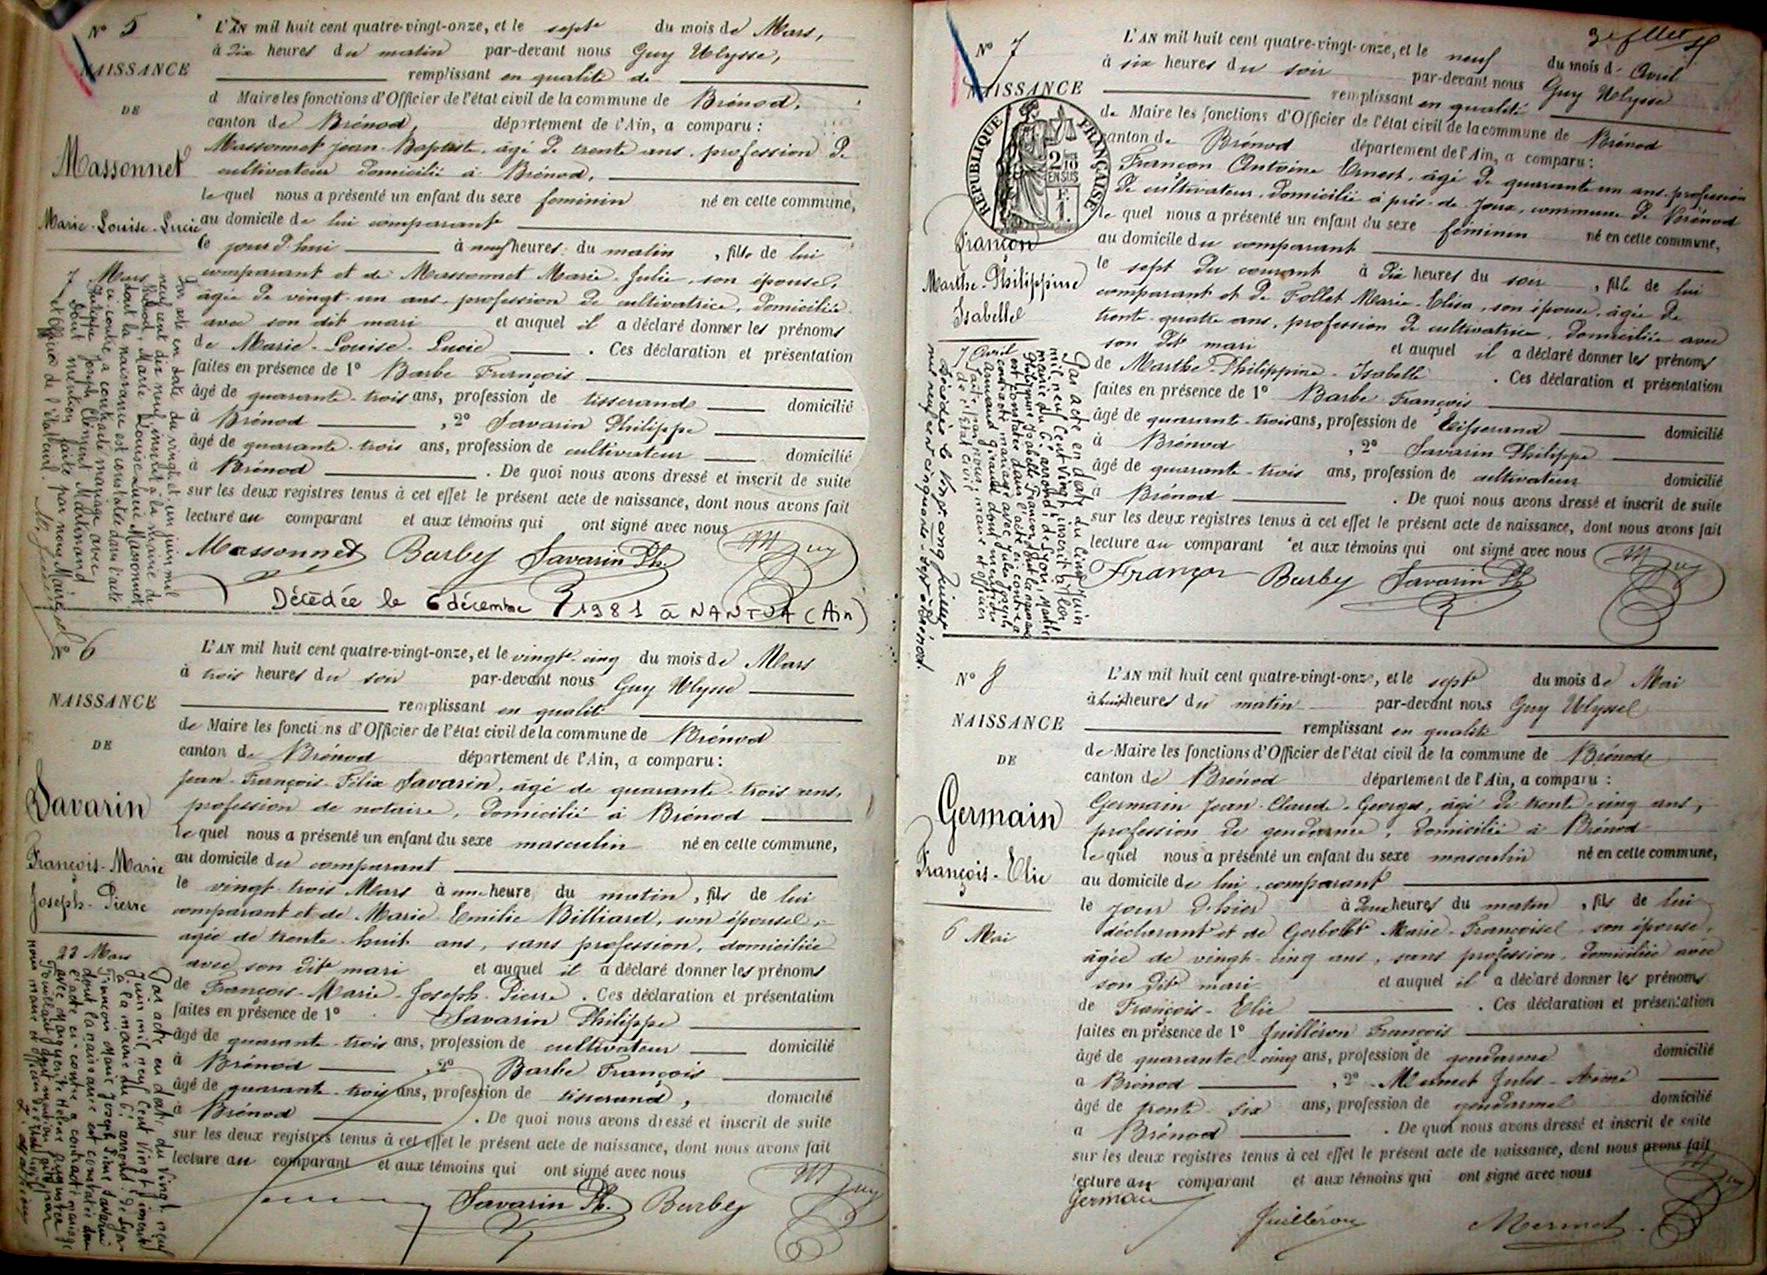 N° 5
NAISSANCE
DE
Massonnet
Marie-Louise-Lucie
7 Mars
L'AN mil huit cent quatre-vingt-onze, et le sept du mois de Mars,
à dix heures du matin par-devant nous Guy Ulysse,
remplissant en qualité de
d Maire les fonctions d'Officier de l'état civil de la commune de Brénod,
canton de Brénod, département de l'Ain, a comparu :
Massonnet Jean-Baptiste, âgé de trente ans, profession de
cultivateur domicilié à Brénod,
lequel nous a présenté un enfant du sexe feminin né en cette commune,
au domicile de lui comparant
le jour d'hui à neuf heures du matin, fille de lui
comparant et de Massonnet Marie-Julie, son épouse,
âgée de vingt-un ans, profession de cultivatrice, domiciliée
avec son dit mari et auquel il a déclaré donner les prénoms
de Marie-Louise-Lucie. Ces déclaration et présentation
faites en présence de 1° Barbe François
âgé de quarante-trois ans, profession de tisserand domicilié
à Brénod, 2° Savarin Philippe
âgé de quarante-trois ans, profession de cultivateur domicilié
à Brénod. De quoi nous avons dressé et inscrit de suite
sur les deux registres tenus à cet effet le présent acte de naissance, dont nous avons fait
lecture au comparant et aux témoins qui ont signé avec nous
Massonnet Barbey Savarin Ph. Guy
Décédée le 6 décembre 1981 à NANTUA (Ain)
Par acte en date du vingt et un juin mil
neuf cent dix neuf, inscrit à la mairie de
Brénod, Marie Louise Lucie Massonnet
dont la naissance est constatée dans l'acte
ci-contre a contracté mariage avec
Joseph Clément
dont mention faite par nous Maire
et officier de l'état civil.
N° 6
NAISSANCE
DE
Savarin
François-Marie
Joseph-Pierre
23 Mars
L'AN mil huit cent quatre-vingt-onze, et le vingt-cinq du mois de Mars
à trois heures du soir par-devant nous Guy Ulysse
remplissant en qualité
de Maire les fonctions d'Officier de l'état civil de la commune de Brénod
canton de Brénod département de l'Ain, a comparu :
Jean-François-Félix Savarin, âgé de quarante-trois ans,
profession de notaire, domicilié à Brénod
lequel nous a présenté un enfant du sexe masculin né en cette commune,
au domicile du comparant
le vingt-trois Mars à une heure du matin, fils de lui
comparant et de Marie Emilie Billiard, son épouse,
agée de trente-huit ans, sans profession, domiciliée
avec son dit mari et auquel il a déclaré donner les prénoms
de François-Marie-Joseph-Pierre. Ces déclaration et présentation
faites en présence de 1° Savarin Philippe
âgé de quarante-trois ans, profession de cultivateur domicilié
à Brénod, 2° Barbe François
âgé de quarante-trois ans, profession de tisserand, domicilié
à Brénod. De quoi nous avons dressé et inscrit de suite
sur les deux registres tenus à cet effet le présent acte de naissance, dont nous avons fait
lecture au comparant et aux témoins qui ont signé avec nous
Savarin Ph. Barbey Guy
Par acte en date du vingt neuf
Juin mil neuf cent vingt, inscrit
à la mairie du 6e arrond. de Lyon
François Marie Joseph Pierre Savarin
dont la naissance est constatée dans
l'acte ci-contre a contracté mariage
avec Marguerite
dont mention faite par
nous maire et officier de l'état civil
3e fllet
N° 7
NAISSANCE
RÉPUBLIQUE FRANÇAISE
2/10 EN SUS
Françon
Marthe-Philippine
Isabelle
7 Avril
L'AN mil huit cent quatre-vingt-onze, et le neuf du mois d'Avril
à six heures du soir par-devant nous Guy Ulysse
remplissant en qualité
de Maire les fonctions d'Officier de l'état civil de la commune de Brénod
canton de Brénod département de l'Ain, a comparu :
Françon Antoine Ernest, âgé de quarante un ans, profession
de cultivateur, domicilié à pré-de-Joux, commune de Brénod
lequel nous a présenté un enfant du sexe féminin né en cette commune,
au domicile du comparant
le sept du courant à dix heures du soir, fille de lui
comparant et de Follet Marie-Elisa, son épouse, âgée de
trente-quatre ans, profession de cultivatrice, domiciliée avec
son dit mari et auquel il a déclaré donner les prénoms
de Marthe-Philippine-Isabelle. Ces déclaration et présentation
faites en présence de 1° Barbe François
âgé de quarante-trois ans, profession de tisserand domicilié
à Brénod, 2° Savarin Philippe
âgé de quarante-trois ans, profession de cultivateur domicilié
à Brénod. De quoi nous avons dressé et inscrit de suite
sur les deux registres tenus à cet effet le présent acte de naissance, dont nous avons fait
lecture au comparant et aux témoins qui ont signé avec nous
Françon Barbey Savarin Ph. Guy
Par acte en date du cinq Juin
mil neuf cent vingt inscrit à la
mairie du 6e arrond. de Lyon, Marthe
Philippine Isabelle Françon, dont la naissance
est constatée dans l'acte ci-contre a
contracté mariage avec Jules Joseph
Armand Giraud dont mention
faite par nous, maire et officier
de l'état civil
Décédée le vingt cinq Juillet
mil neuf cent cinquante-sept à Brénod
N° 8
NAISSANCE
DE
Germain
François-Elie
6 Mai
L'AN mil huit cent quatre-vingt-onze, et le sept du mois de Mai
à huit heures du matin par-devant nous Guy Ulysse
remplissant en qualité
de Maire les fonctions d'Officier de l'état civil de la commune de Brénod
canton de Brénod département de l'Ain, a comparu :
Germain Jean-Claude-Georges, âgé de trente-cinq ans,
profession de gendarme, domicilié à Brénod
lequel nous a présenté un enfant du sexe masculin né en cette commune,
au domicile de lui comparant
le jour d'hier à deux heures du matin, fils de lui
déclarant et de Gerbollet Marie-Françoise, son épouse,
âgée de vingt-cinq ans, sans profession, domiciliée avec
son dit mari et auquel il a déclaré donner les prénoms
de François-Elie. Ces déclaration et présentation
faites en présence de 1° Juilléron François
âgé de quarante-cinq ans, profession de gendarme domicilié
à Brénod, 2° Mermet Jules-Aimé
âgé de trente-six ans, profession de gendarme domicilié
à Brénod. De quoi nous avons dressé et inscrit de suite
sur les deux registres tenus à cet effet le présent acte de naissance, dont nous avons fait
lecture au comparant et aux témoins qui ont signé avec nous
Germain Juilléron Mermet Guy